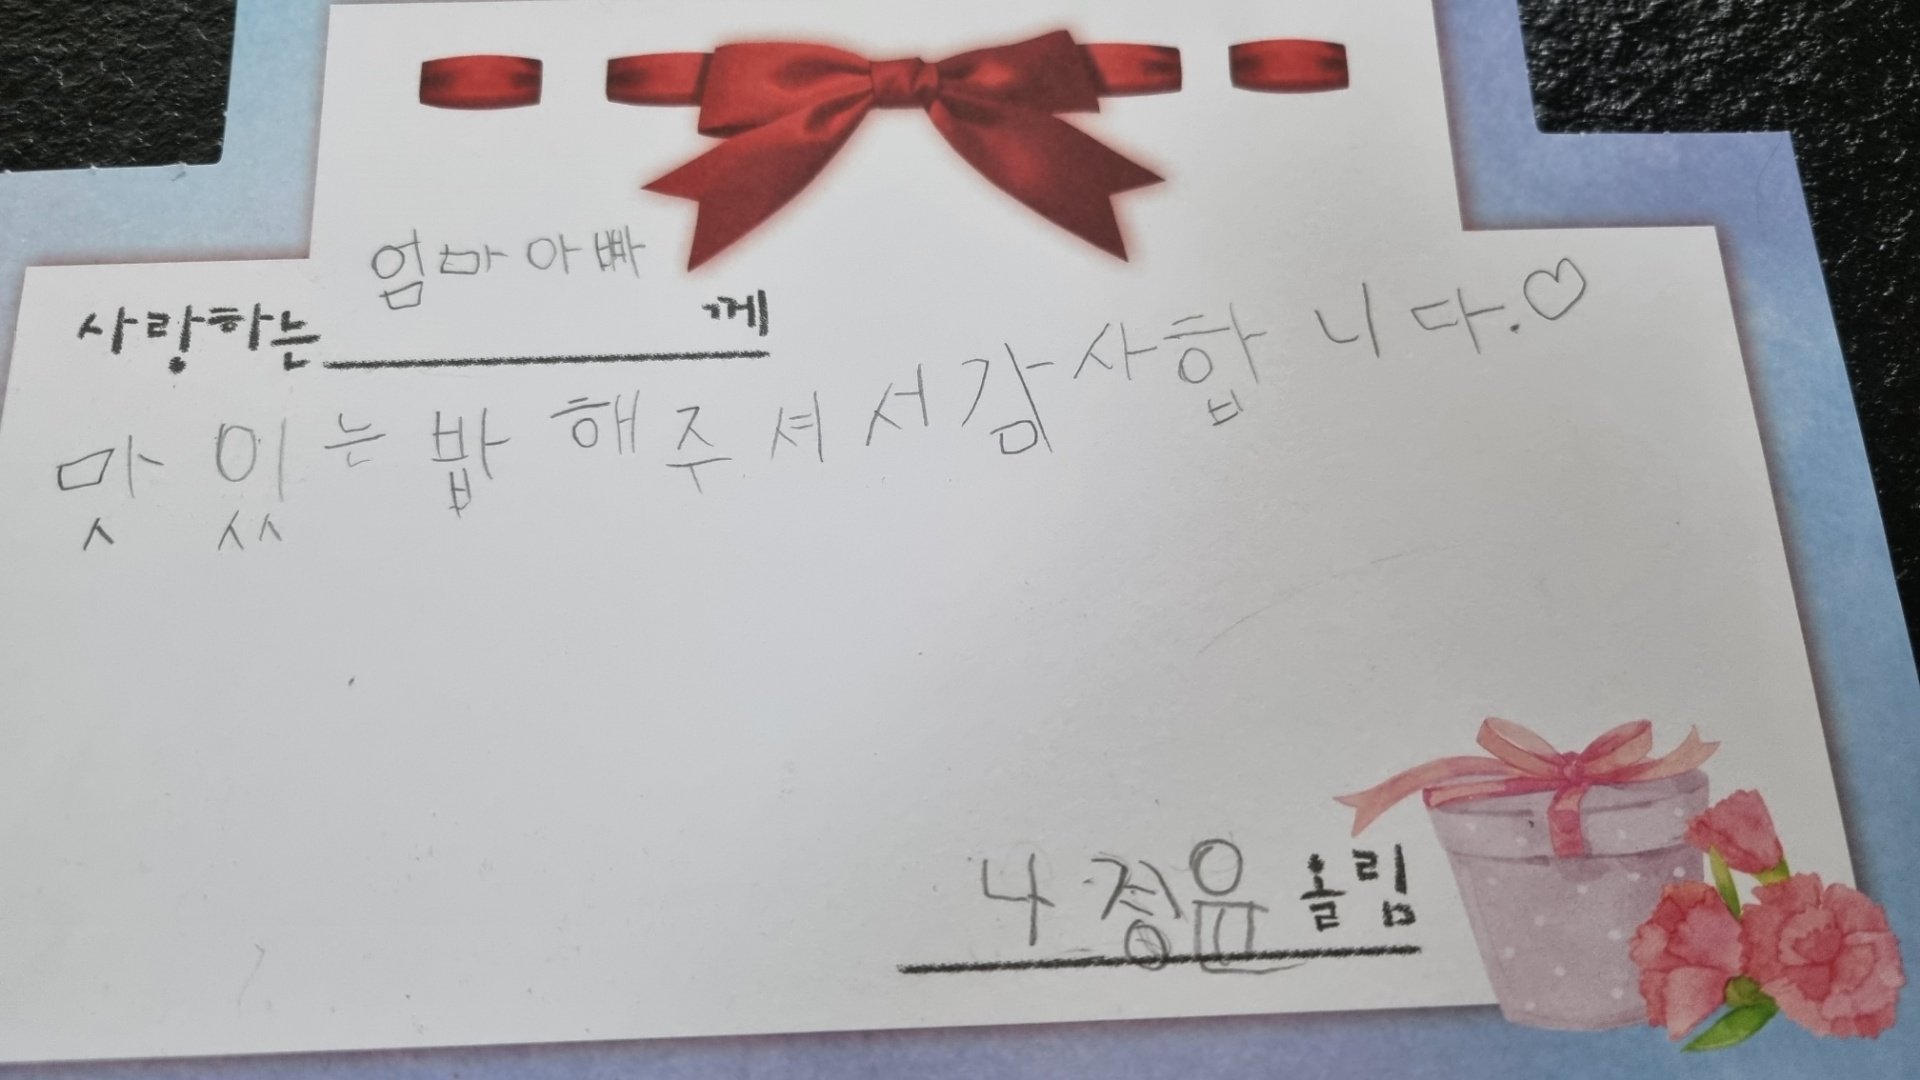 사랑하는 엄마아빠 께
맛있는밥해주셔서감사합니다.♡
나정음 올림